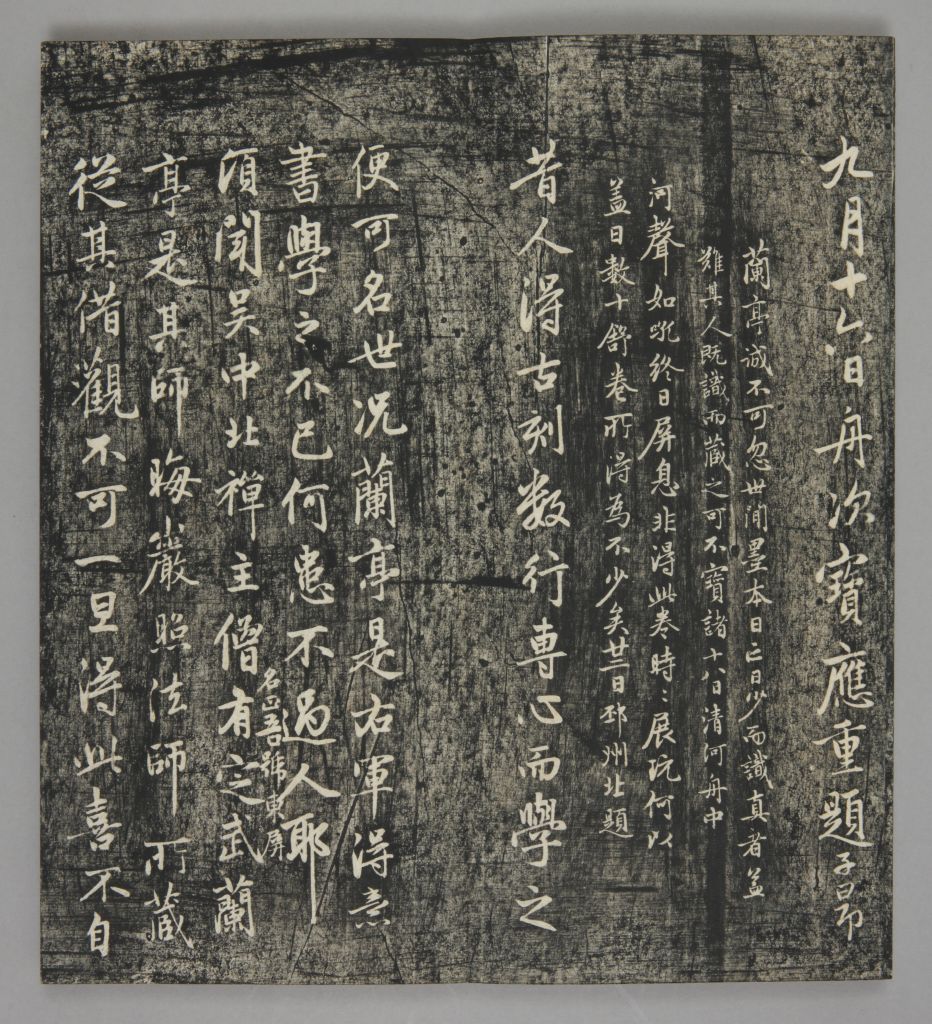 九月十六日舟次寶應重題子昂
蘭亭誠不可忽世間墨本日亡日少而識真者益
難其人既識而藏之可不寶諸十八日清河舟中
河聲如吼終日屏息非得此卷時〻展玩何以
益日數十舒卷所得為不少矣廿二日邳州北題
昔人得古刻数行専心而學之
便可名世况蘭亭是右軍得意
書學之不已何患不過人耶
頃聞吴中北禪主僧名正吾號東屏有定武蘭
亭是其師晦巖照法師所藏
從其借觀不可一旦得此喜不自